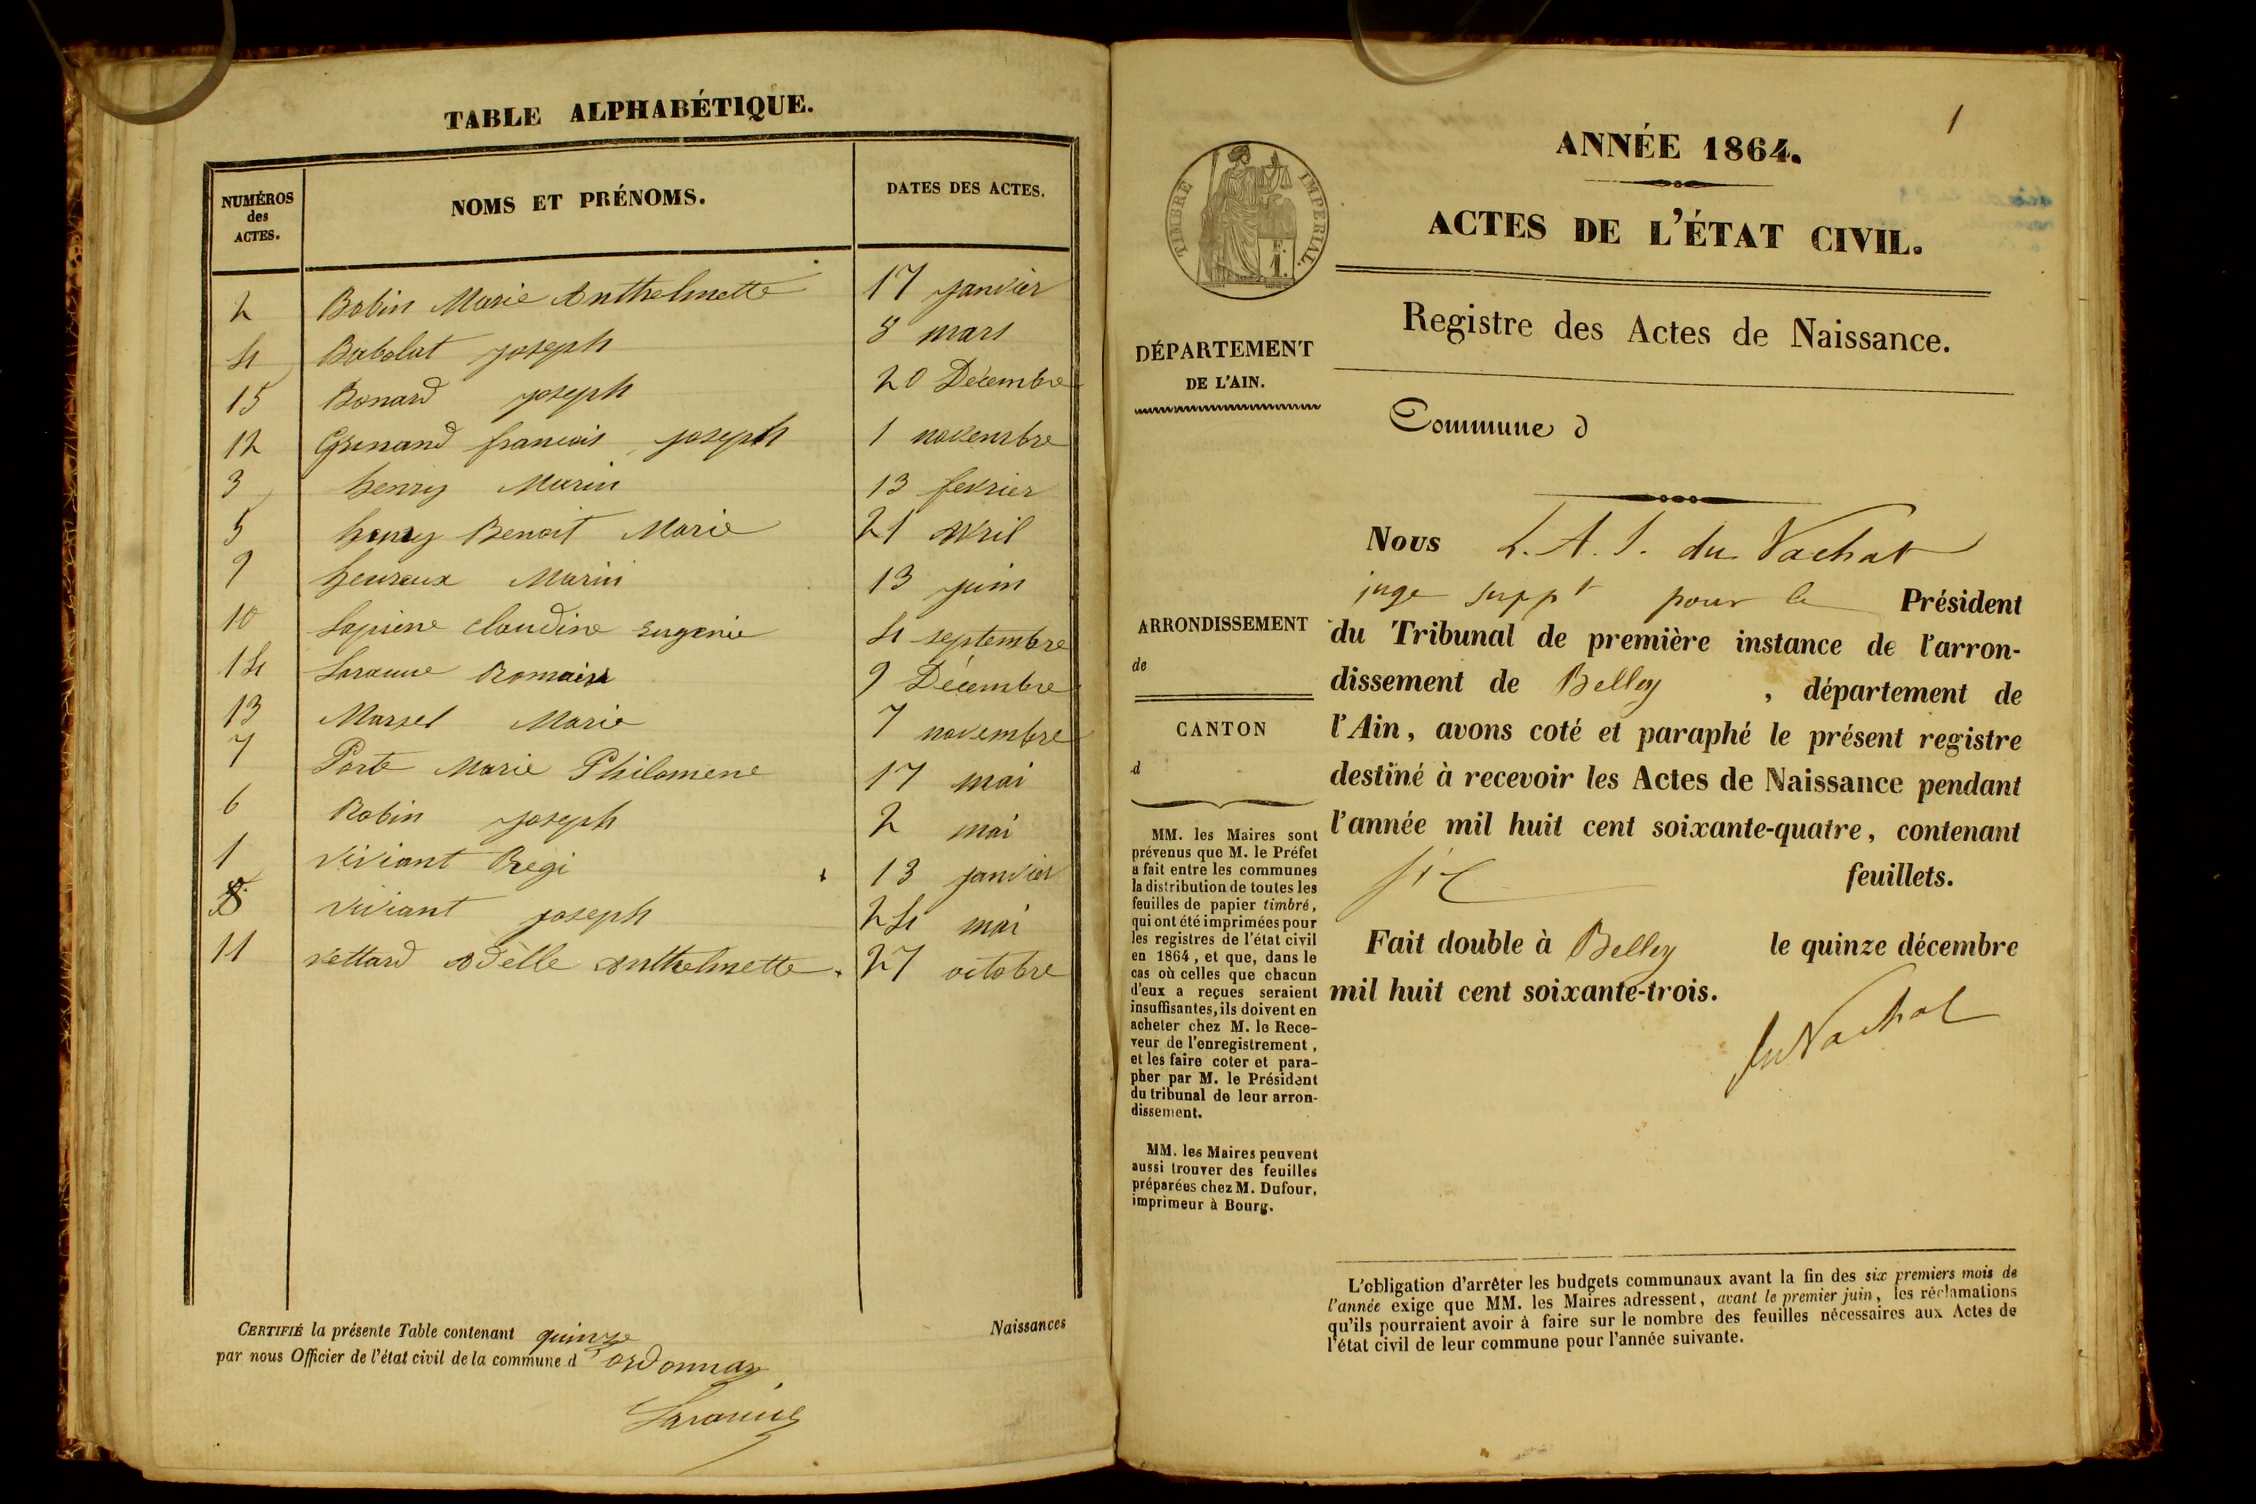 TABLE ALPHABÉTIQUE.
NUMÉROS des ACTES. NOMS ET PRÉNOMS. DATES DES ACTES.
2 Bobin Marie Anthelmette 17 janvier
4 Babolat joseph 8 mars
15 Bonard joseph 20 Décembre
12 Grinand francois joseph 1 novembre
3 henry Marin 13 fevrier
5 henry Benoit Marie 21 avril
9 heuraux Marin 13 juin
10 claudine Eugenie 4 septembre
14 Laracine Romain 9 Décembre
13 Marsel Marie 7 novembre
7 Porte Marie Philomene 17 mai
6 Robin joseph 2 mai
1 viviant Regi 13 janvier
8 viviant joseph 24 mai
11 vettard Adèlle Anthelmette 27 octobre
CERTIFIÉ la présente Table contenant quinze Naissances
par nous Officier de l'état civil de la commune d ordonnaz
1
ANNÉE 1864.
TIMBRE IMPERIAL.
F.
1.
ACTES DE L'ÉTAT CIVIL.
Registre des Actes de Naissance.
DÉPARTEMENT
DE L'AIN.
Commune d
ARRONDISSEMENT
de
CANTON
d
MM. les Maires sont
prévenus que M. le Préfet
a fait entre les communes
la distribution de toutes les
feuilles de papier timbré,
qui ont été imprimées pour
les registres de l'état civil
en 1864, et que, dans le
cas où celles que chacun
d'eux a reçues seraient
insuffisantes, ils doivent en
acheter chez M. le Rece-
veur de l'enregistrement,
et les faire coter et para-
pher par M. le Président
du tribunal de leur arron-
dissement.
MM. les Maires peuvent
aussi trouver des feuilles
préparées chez M. Dufour,
imprimeur à Bourg.
Nous L. A. J. du Vachat
juge suppt pour le Président
du Tribunal de première instance de l'arron-
dissement de Belley, département de
l'Ain, avons coté et paraphé le présent registre
destiné à recevoir les Actes de Naissance pendant
l'année mil huit cent soixante-quatre, contenant
six feuillets.
Fait double à Belley le quinze décembre
mil huit cent soixante-trois.
du Vachat
L'obligation d'arrêter les budgets communaux avant la fin des six premiers mois de
l'année exige que MM. les Maires adressent, avant le premier juin, les réclamations
qu'ils pourraient avoir à faire sur le nombre des feuilles nécessaires aux Actes de
l'état civil de leur commune pour l'année suivante.